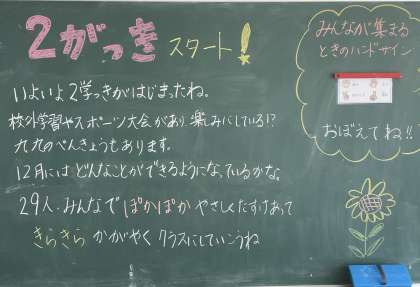 2がっき スタート!
いよいよ2学っきがはじまったね。
校外学習やスポーツ大会があり楽しみにしている!?
九九のべんきょうもあります。
12月にはどんなことができるようになっているかな。
29人.みんなでぽかぽかやさしくたすけあって
きらきらかがやくクラスにしていこうね
みんなが集まる
ときのハンドサイン
おぼえてね!!